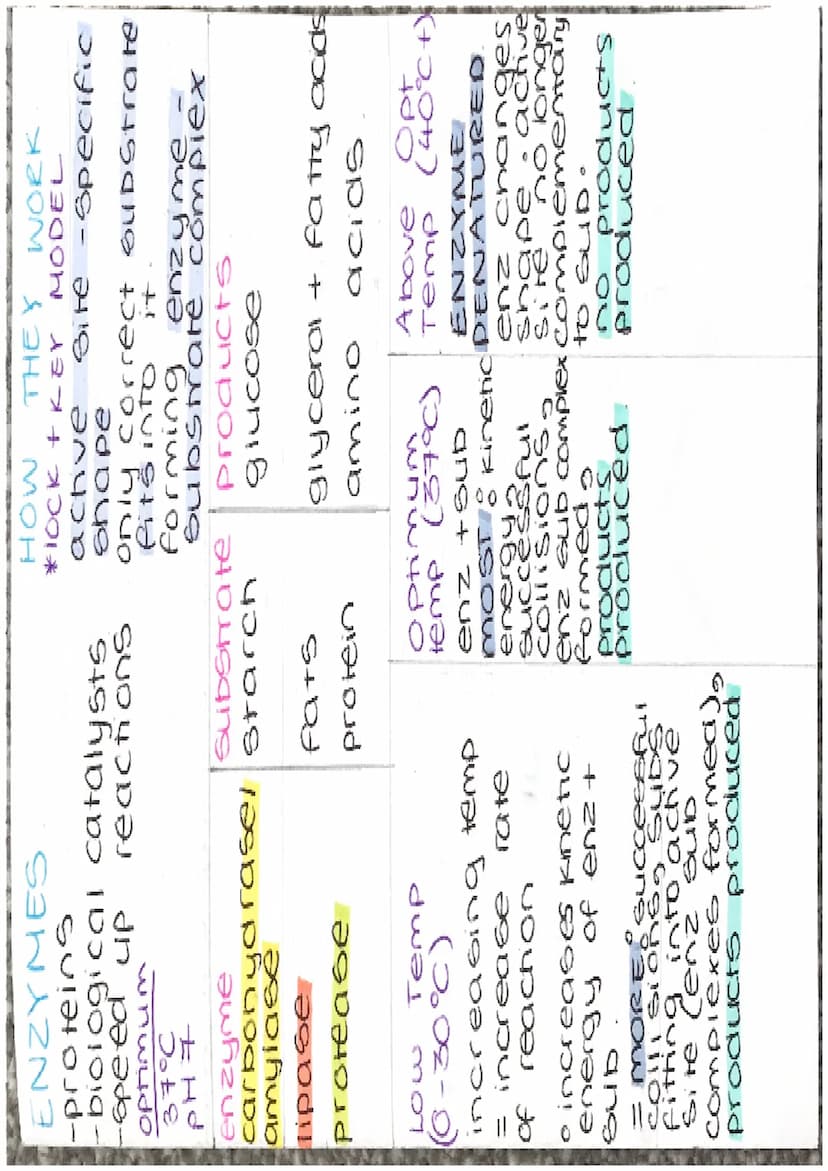 ENZYMES
-proteins
-biological catalysts
-speed up reactions
optimum
37°C
pH 7
HOW THEY WORK
*lock + KEY MODEL
active site - specific
shape
only correct substrate
fits into it.
forming enzyme -
substrate complex
enzyme
carbohydrase/
amylase
lipase
protease
substrate
starch
fats
protein
products
glucose
glycerol + fatty acids
amino acids.
Low Temp
(0-30°C)
increasing temp
= increase rate
of reaction
• increases kinetic
energy of enz +
sub.
= MORE: successful
collisions, subs
fitting into active
site (enz sub
complexes formed),
products produced
Optimum
temp (37°C)
enz + sub
MOST: kinetic
energy,
successful
collisions,
enz sub complex
formed,
products
produced.
Above Opt
Temp (40°C+)
ENZYME
DENATURED.
enz changes
shape. active
site no longer
complementary
to sub.
no products
produced